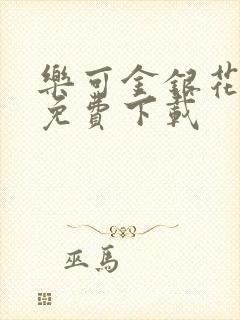 樂可金銀花
免費下載
巫馬